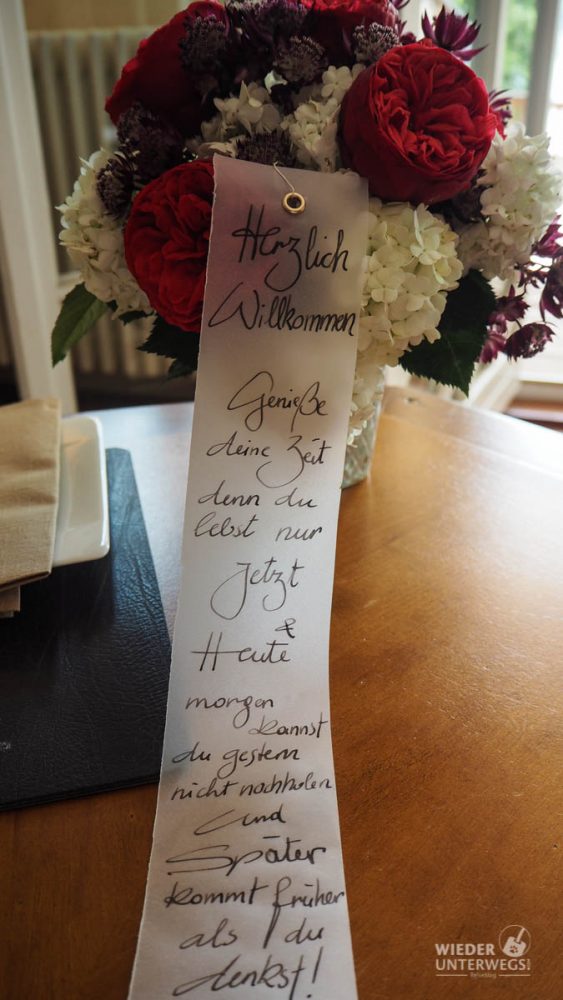 Herzlich
Willkommen
Genieße
deine Zeit
denn du
lebst nur
Jetzt
&
Heute
morgen
kannst
du gestern
nicht nachholen
Und
Später
kommt früher
als du
denkst!
WIEDER
UNTERWEGS